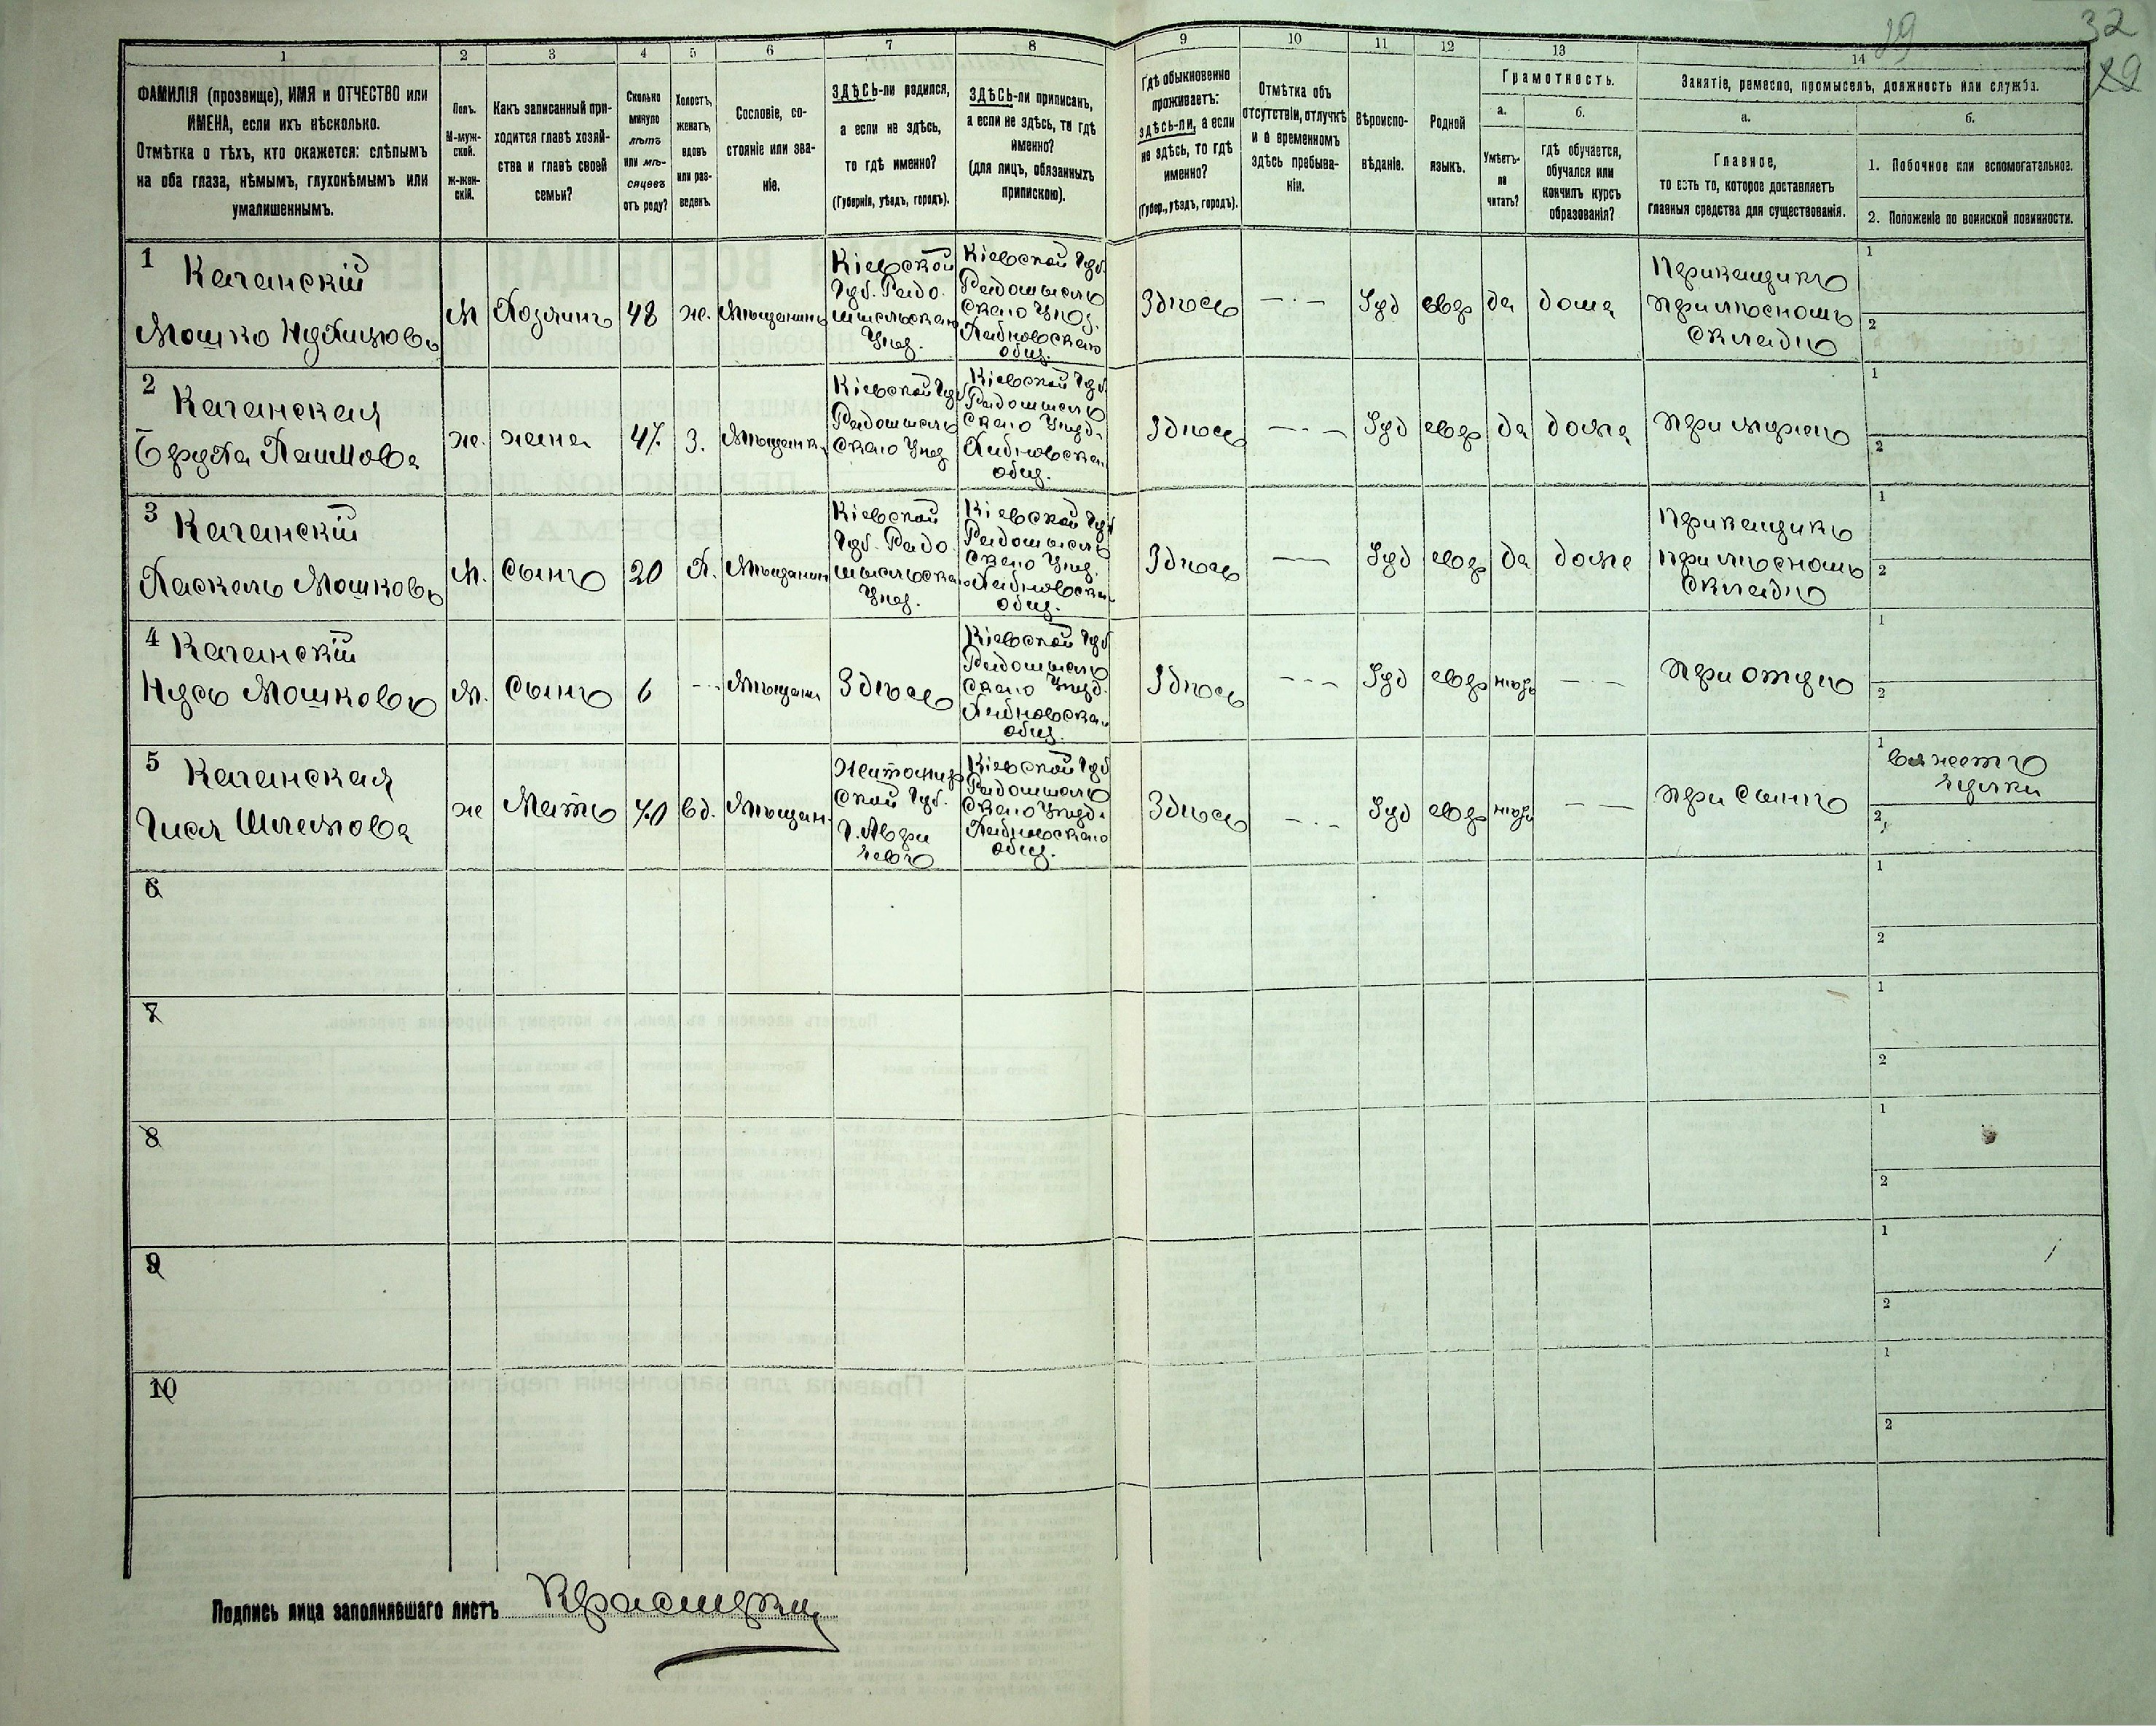 39
32
29
1
2
3
4
5
6
7
8
9
10
11
12
13
14
ФАМИЛІЯ (прозвище), ИМЯ и ОТЧЕСТВО или
ИМЕНА, если ихъ нѣсколько.
Отмѣтка о тѣхъ, кто окажется: слѣпымъ
на оба глаза, нѣмымъ, глухонѣмымъ или
умалишеннымъ.
Полъ.
М-муж-
ской.
Ж-жен-
скій.
Какъ записанный при-
ходится главѣ хозяй-
ства и главѣ своей
семьи?
Сколько
минуло
лѣтъ
или мѣ-
сяцевъ
отъ роду?
Холостъ,
женатъ,
вдовъ
или раз-
веденъ.
Сословіе, со-
стояніе или зва-
ніе.
ЗДѢСЬ-ли родился,
а если не здѣсь,
то гдѣ именно?
(Губернія, уѣздъ, городъ).
ЗДѢСЬ-ли приписанъ,
а если не здѣсь, то гдѣ
именно?
(для лицъ, обязанныхъ
припискою).
Гдѣ обыкновенно
проживаетъ:
здѣсь-ли, а если
не здѣсь, то гдѣ
именно?
(Губер., уѣздъ, городъ).
Отмѣтка объ
отсутствіи, отлучкѣ
и о временномъ
здѣсь пребыва-
ніи.
Вѣроиспо-
вѣданіе.
Родной
языкъ.
Грамотность.
а.
Умѣетъ-
ли
читать?
б.
гдѣ обучается,
обучался или
кончилъ курсъ
образованія?
Занятіе, ремесло, промыселъ, должность или служба.
а.
Главное,
то есть то, которое доставляетъ
главныя средства для существованія.
б.
1. Побочное или вспомогательное.
2. Положеніе по воинской повинности.
1
Каганскій
Мошко
М
Хозяинъ
48
ж.
Мѣщанинъ
Кіевской
Губ. Радо
мысльскаго
Уѣз.
Кіевской Губ
Радомысль
скаго Уѣз.
общ.
Здѣсь
— · —
Іуд
евр
да
дома
Прикащикъ
при лѣсномъ
складѣ
1
2
2
Каганская
ж.
жена
47
З.
Мѣщанк.
Кіевской Губ
Радомысль
скаго Уѣз
Кіевской Губ
Радомысль
скаго Уѣзд.
общ.
Здѣсь
— · —
Іуд
евр
да
дома
при мужѣ
1
2
3
Каганскій
Хаскель Мошковъ
М.
Сынъ
20
Х.
Мѣщанин
Кіевской
Губ. Радо
мысльска
Уѣз.
Кіевской Губ
Радомысль
скаго Уѣз.
общ.
Здѣсь
—
Іуд
евр
да
дома
Прикащикъ
при лѣсномъ
складѣ
1
2
4
Каганскій
Мошковъ
М.
Сынъ
6
— · —
Мѣщан
Здѣсь
Кіевской Губ
Радомысль
скаго Уѣзд.
общ.
Здѣсь
— · —
Іуд
евр
— · —
при отцѣ
1
2
5
Каганская
Шлемова
ж
Мать
70
вд.
Мѣщан.
Житомир
ской Губ.
Кіевской Губ
Радомысль
скаго Уѣзд.
общ.
Здѣсь
— · —
Іуд
евр
— —
при сынѣ
1
вяжетъ
чулки
2
6
1
2
7
1
2
8
1
2
9
1
2
10
1
2
Подпись лица заполнявшаго листъ